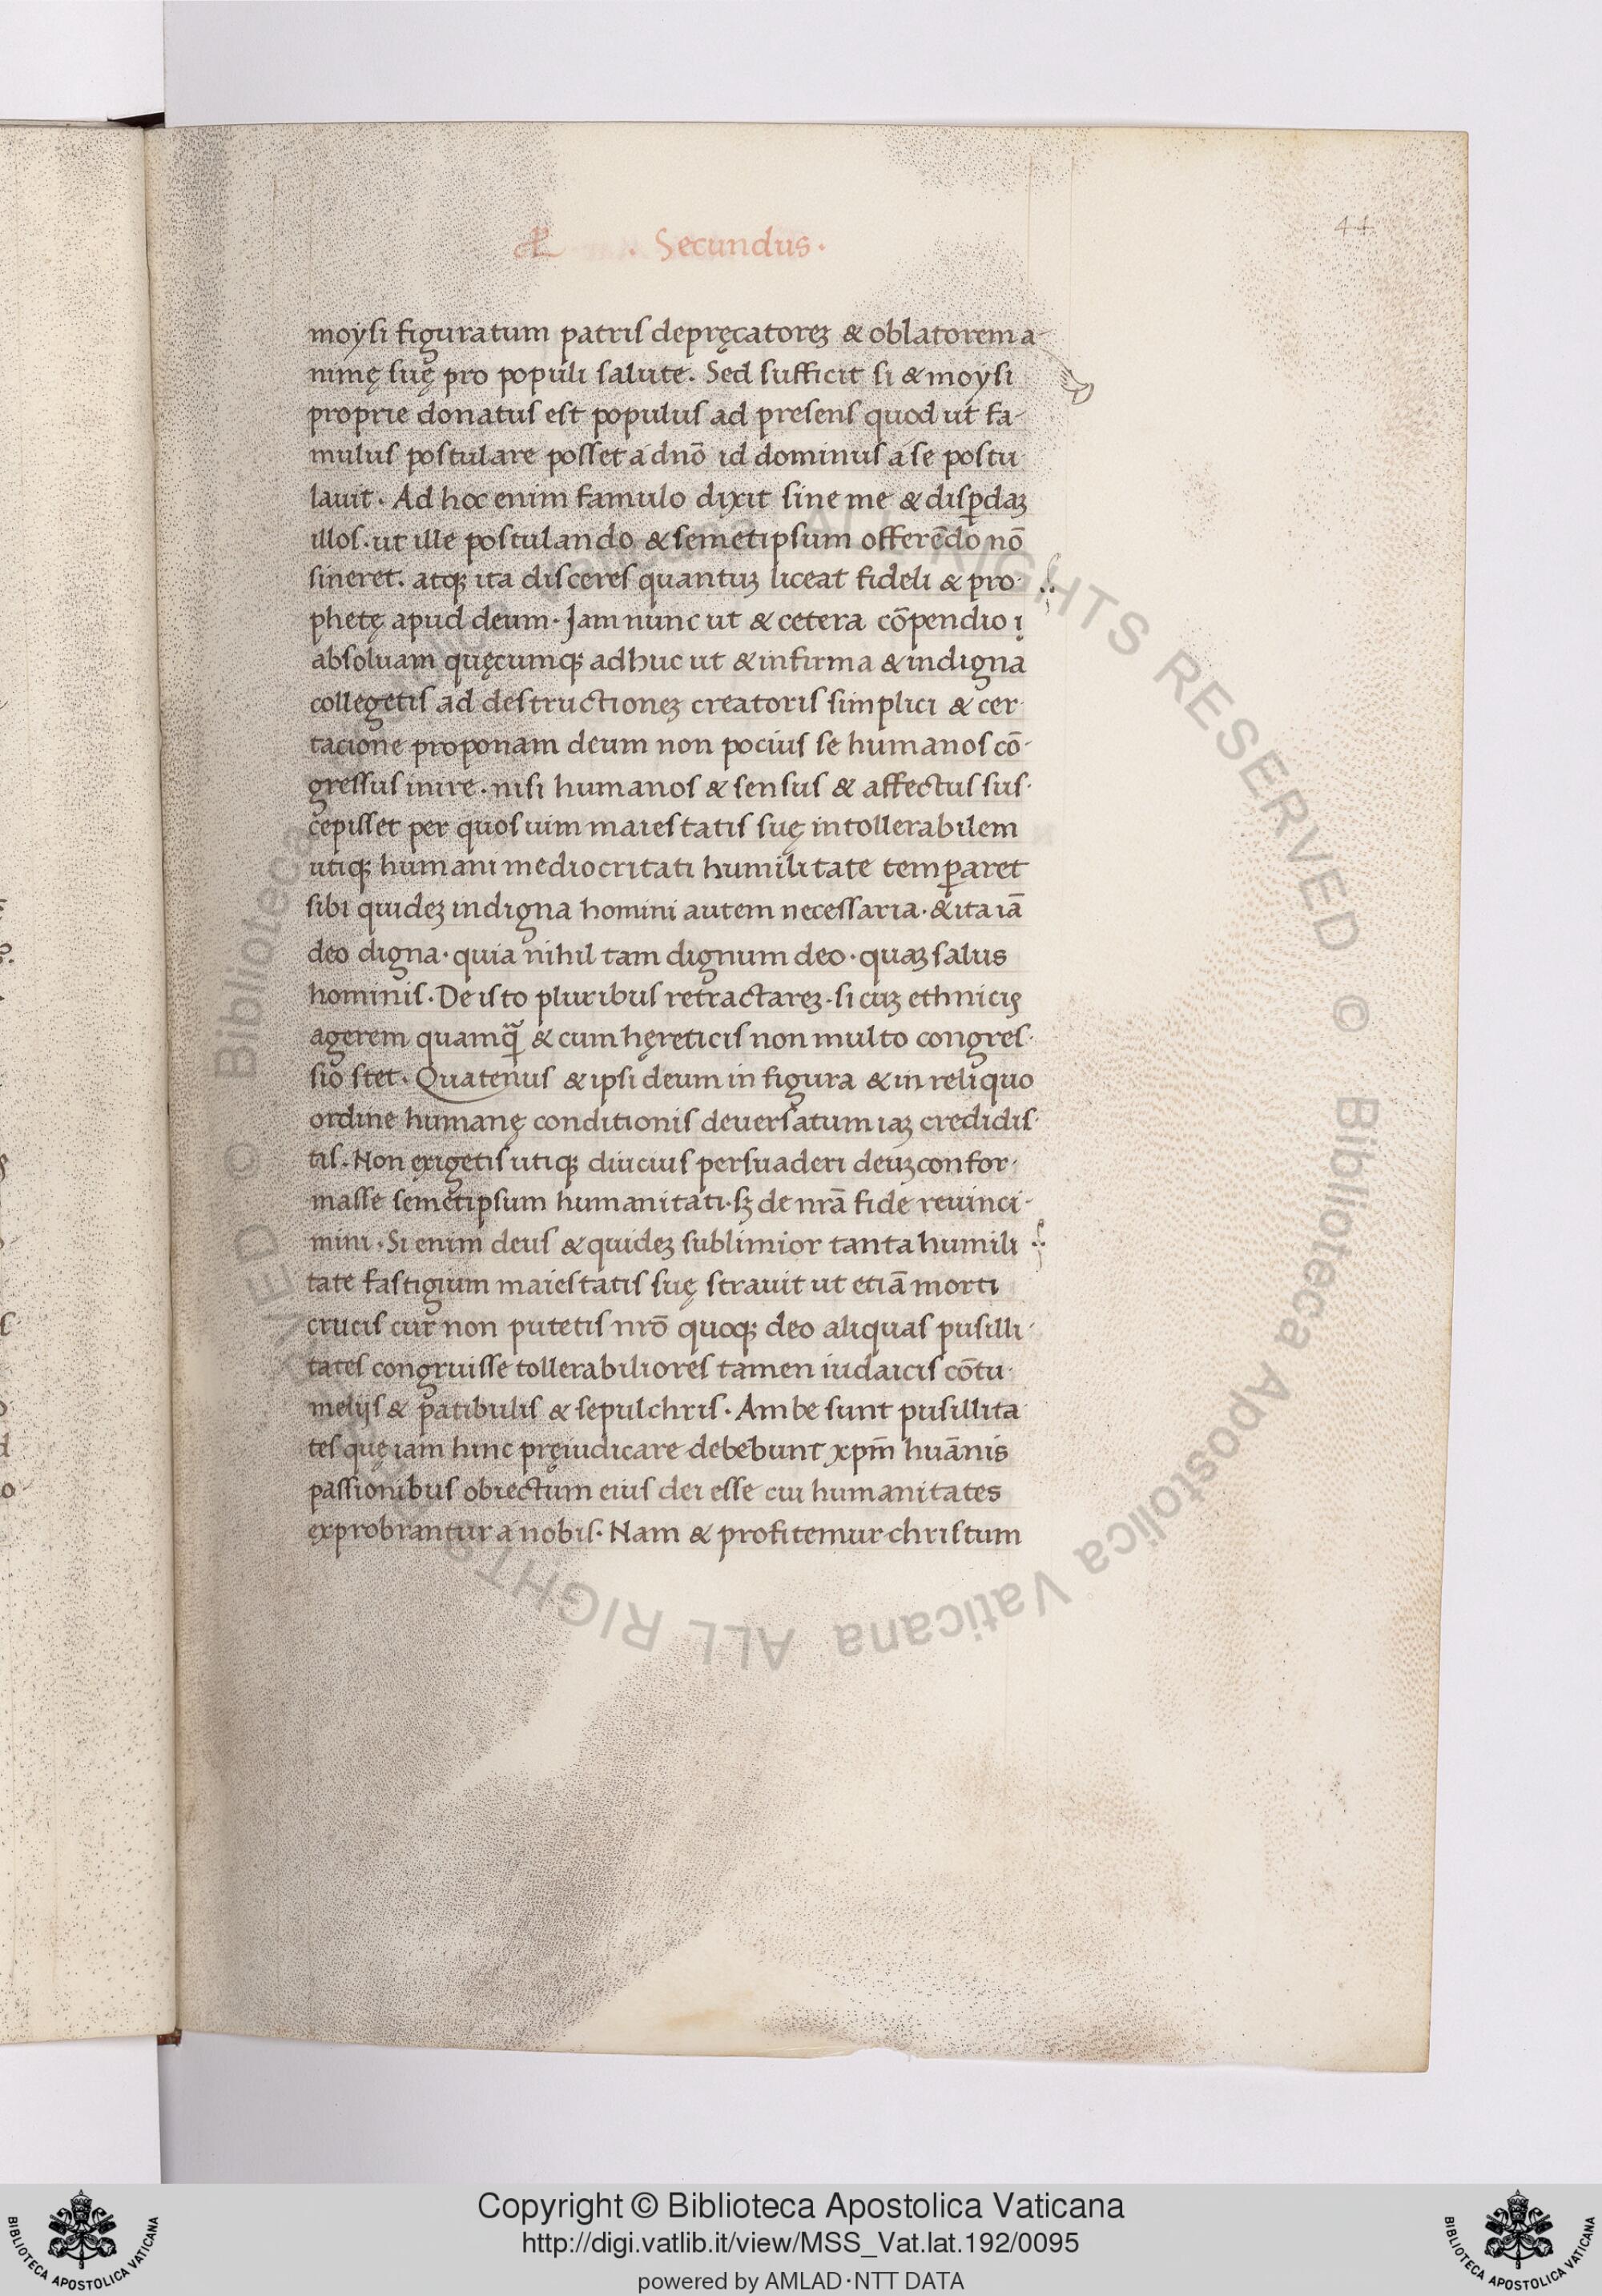 44
. Secundus.
moysi figuratum patris depręcatorēz & oblatorem a-
nimę suę pro populi salute. Sed sufficit si & moysi
proprie donatus est populus ad presens quod ut fa-
mulus postulare posset a dnō id dominus a se postu
lavit. Ad hoc enim famulo dixit sine me & disꝑdaꝫ
illos. ut ille postulando & semetipsum offerēdo nō
sineret. atqꝫ ita disceres quantuꝫ liceat fideli & pro-
phetę apud deum. Jam nunc ut & cetera cōpendio ị
absoluam quęcumqꝫ adhuc ut & infirma & indigna
collegetis ad destructioneꝫ creatoris simplici & cer-
tacione proponam deum non pocius se humanos cō-
gressus inire. nisi humanos & sensus & affectus sus-
cepisset per quos uim maiestatis suę intollerabilem
utiqꝫ humani mediocritati humilitate temꝑaret
sibi quideꝫ indigna homini autem necessaria. & ita iā
deo digna. quia nihil tam dignum deo. quaꝫ salus
hominis. De isto pluribus retractareꝫ. si cuꝫ ethnicis
agerem quamq̄ & cum hęreticis non multo congres-
sio stet. Quatenus & ipsi deum in figura & in reliquo
ordine humanę conditionis deversatum iaꝫ credidis-
tis. Non exigetis utiqꝫ diucius persuaderi deuꝫ confor-
masse semetipsum humanitati. sꝫ de nrā fide revinci-
mini. Si enim deus & quideꝫ sublimior tanta humili
tate fastigium maiestatis suę stravit ut etiā morti
crucis cur non putetis nrō quoqꝫ deo aliquas pusilli-
tates congruisse tollerabiliores tamen iudaicis cōtu-
melijs & patibulis & sepulchris. Ambe sunt pusillita
tes quę iam hinc pręiudicare debebunt xpm̄ huānis
passionibus obiectum eius dei esse cui humanitates
exprobrantur a nobis. Nam & profitemur christum
Copyright © Biblioteca Apostolica Vaticana
http://digi.vatlib.it/view/MSS_Vat.lat.192/0095
powered by AMLAD·NTT DATA
BIBLIOTECA APOSTOLICA VATICANA
BIBLIOTECA APOSTOLICA VATICANA